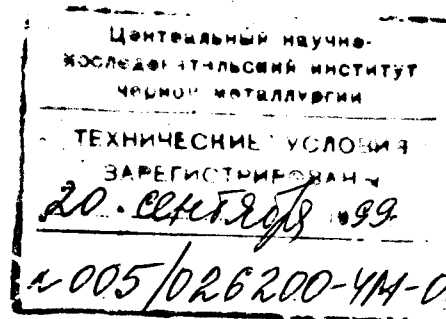 Центральный научно-
исследовательский институт
черной металлургии
ТЕХНИЧЕСКИЕ УСЛОВИЯ
ЗАРЕГИСТРИРОВАНЫ
20 · сентября 199
005/026200-ЧМ-0